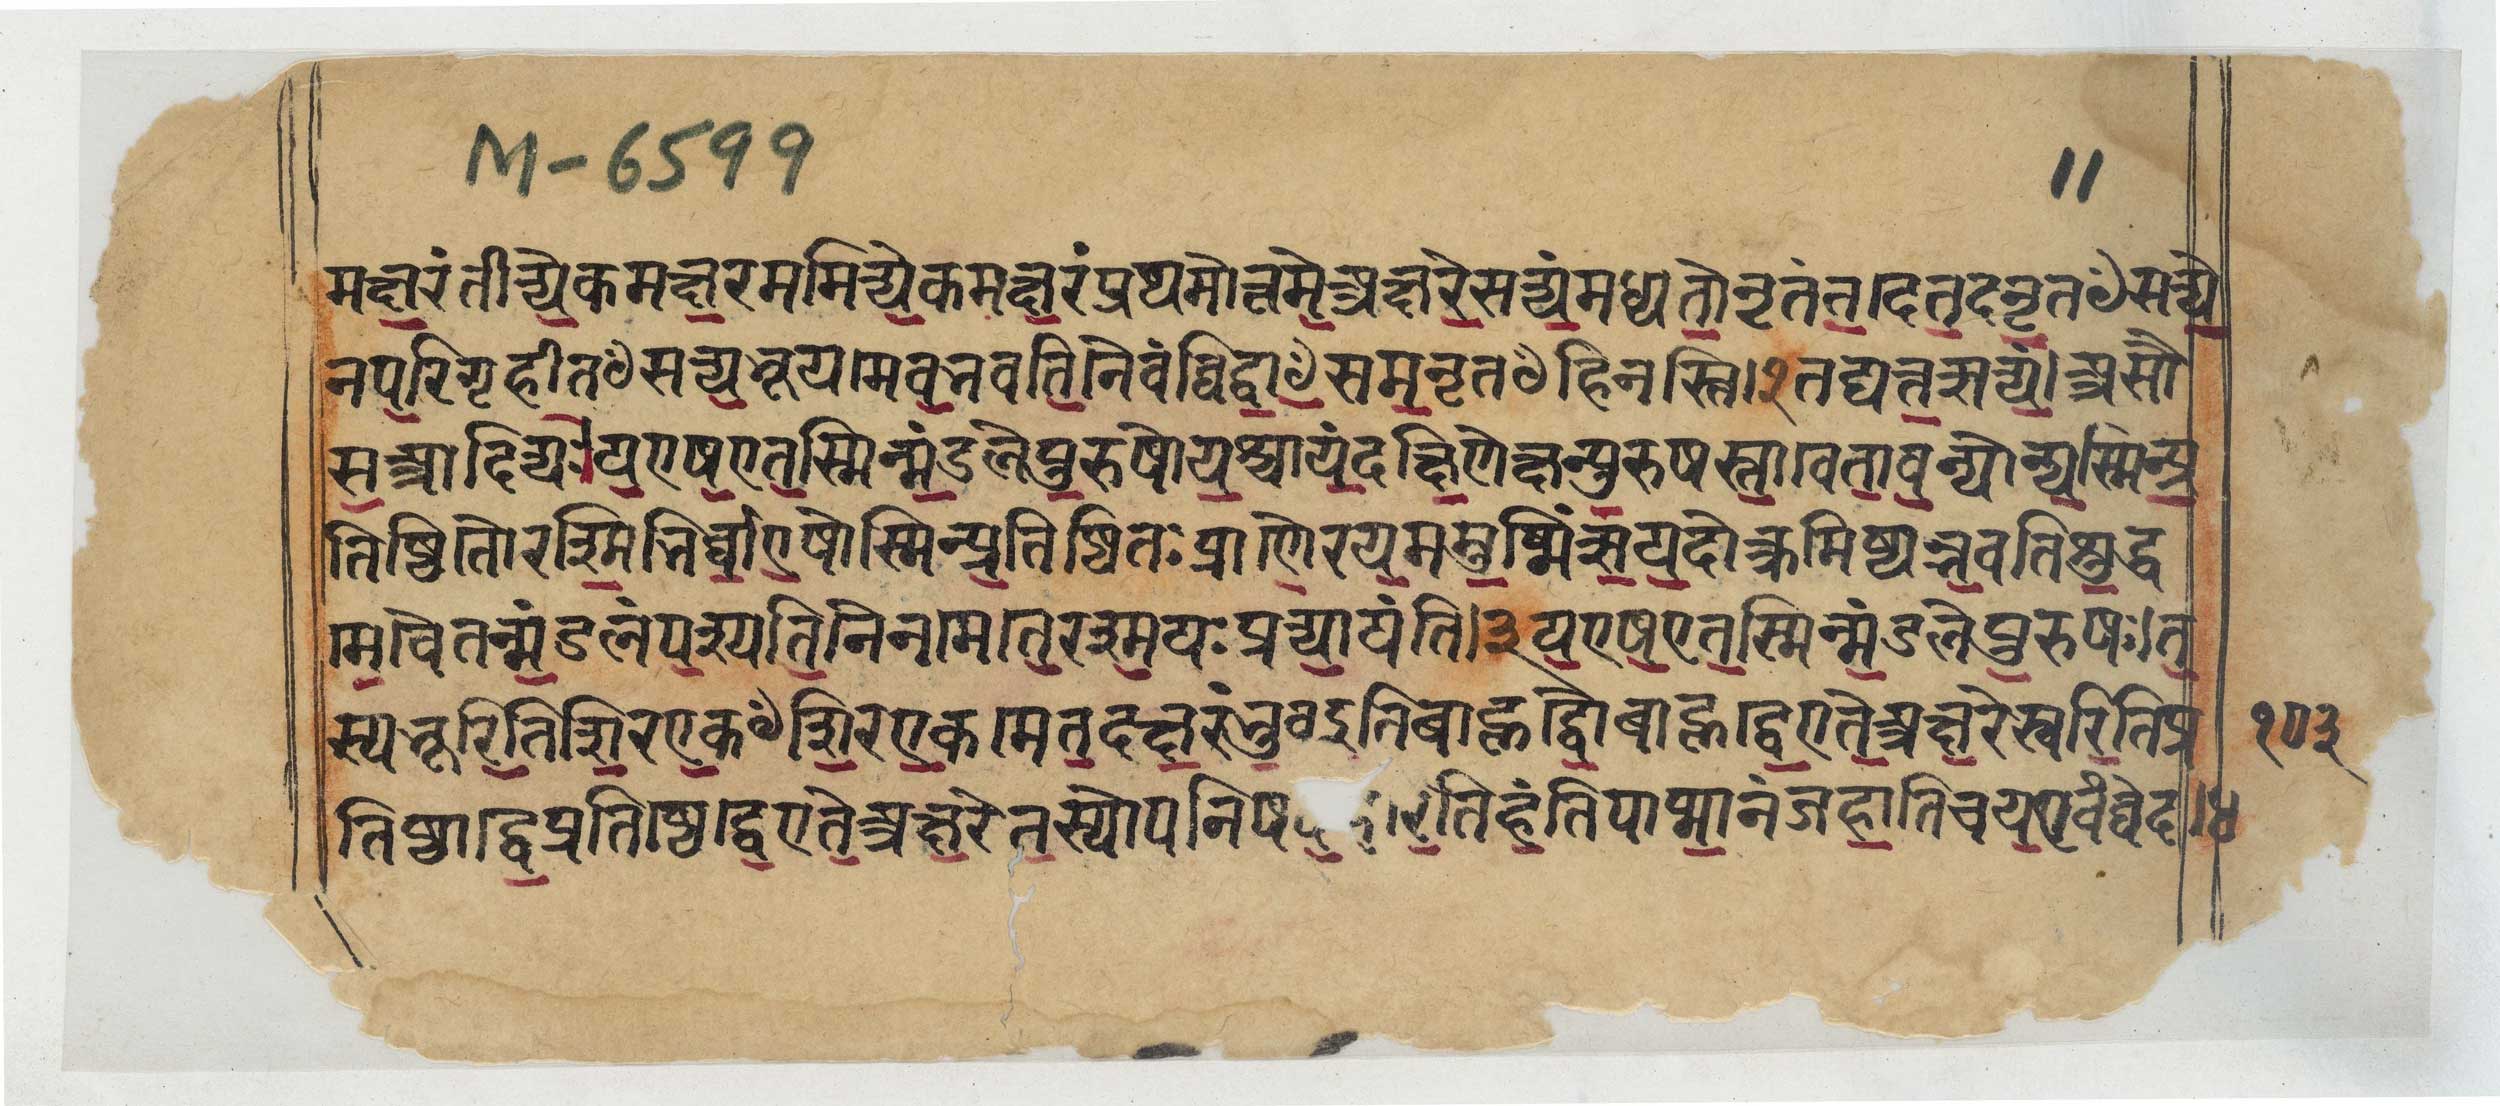 M-6599
11
मक्षरंतीत्येकमक्षरममित्येकमक्षरंप्रथमोत्तमेअक्षरेसत्यंमध्यतोनृतंतदेतदनृतꣳसत्ये
नपरिगृहीतꣳसत्यभूयमेवभवतिनैवंविद्वाꣳसमनृतꣳहिनस्ति।२तद्यत्तत्सत्यं।असौ
सआदित्यः।यएषएतस्मिन्मंडलेपुरुषोयश्चायंदक्षिणेक्षन्पुरुषस्तावेतावन्योन्यस्मिन्प्र
तिष्ठितौरश्मिभिर्वाएषोस्मिन्प्रतिष्ठितःप्राणैरयममुष्मिंत्सयदोत्क्रमिष्यन्भवतिशुद्ध
मेवैतन्मंडलंपश्यतिनैनमेतेरश्मयःप्रत्यायंति।३यएषएतस्मिन्मंडलेपुरुषः।त
स्यभूरितिशिरएकꣳशिरएकमेतदक्षरंभुवइतिबाहूद्वौबाहूद्वेएतेअक्षरेस्वरितिप्र
१०३
तिष्ठाद्वेप्रतिष्ठेद्वेएतेअक्षरेतस्योपनिष रितिहंतिपाप्मानंजहातिचयएवंवेद।४